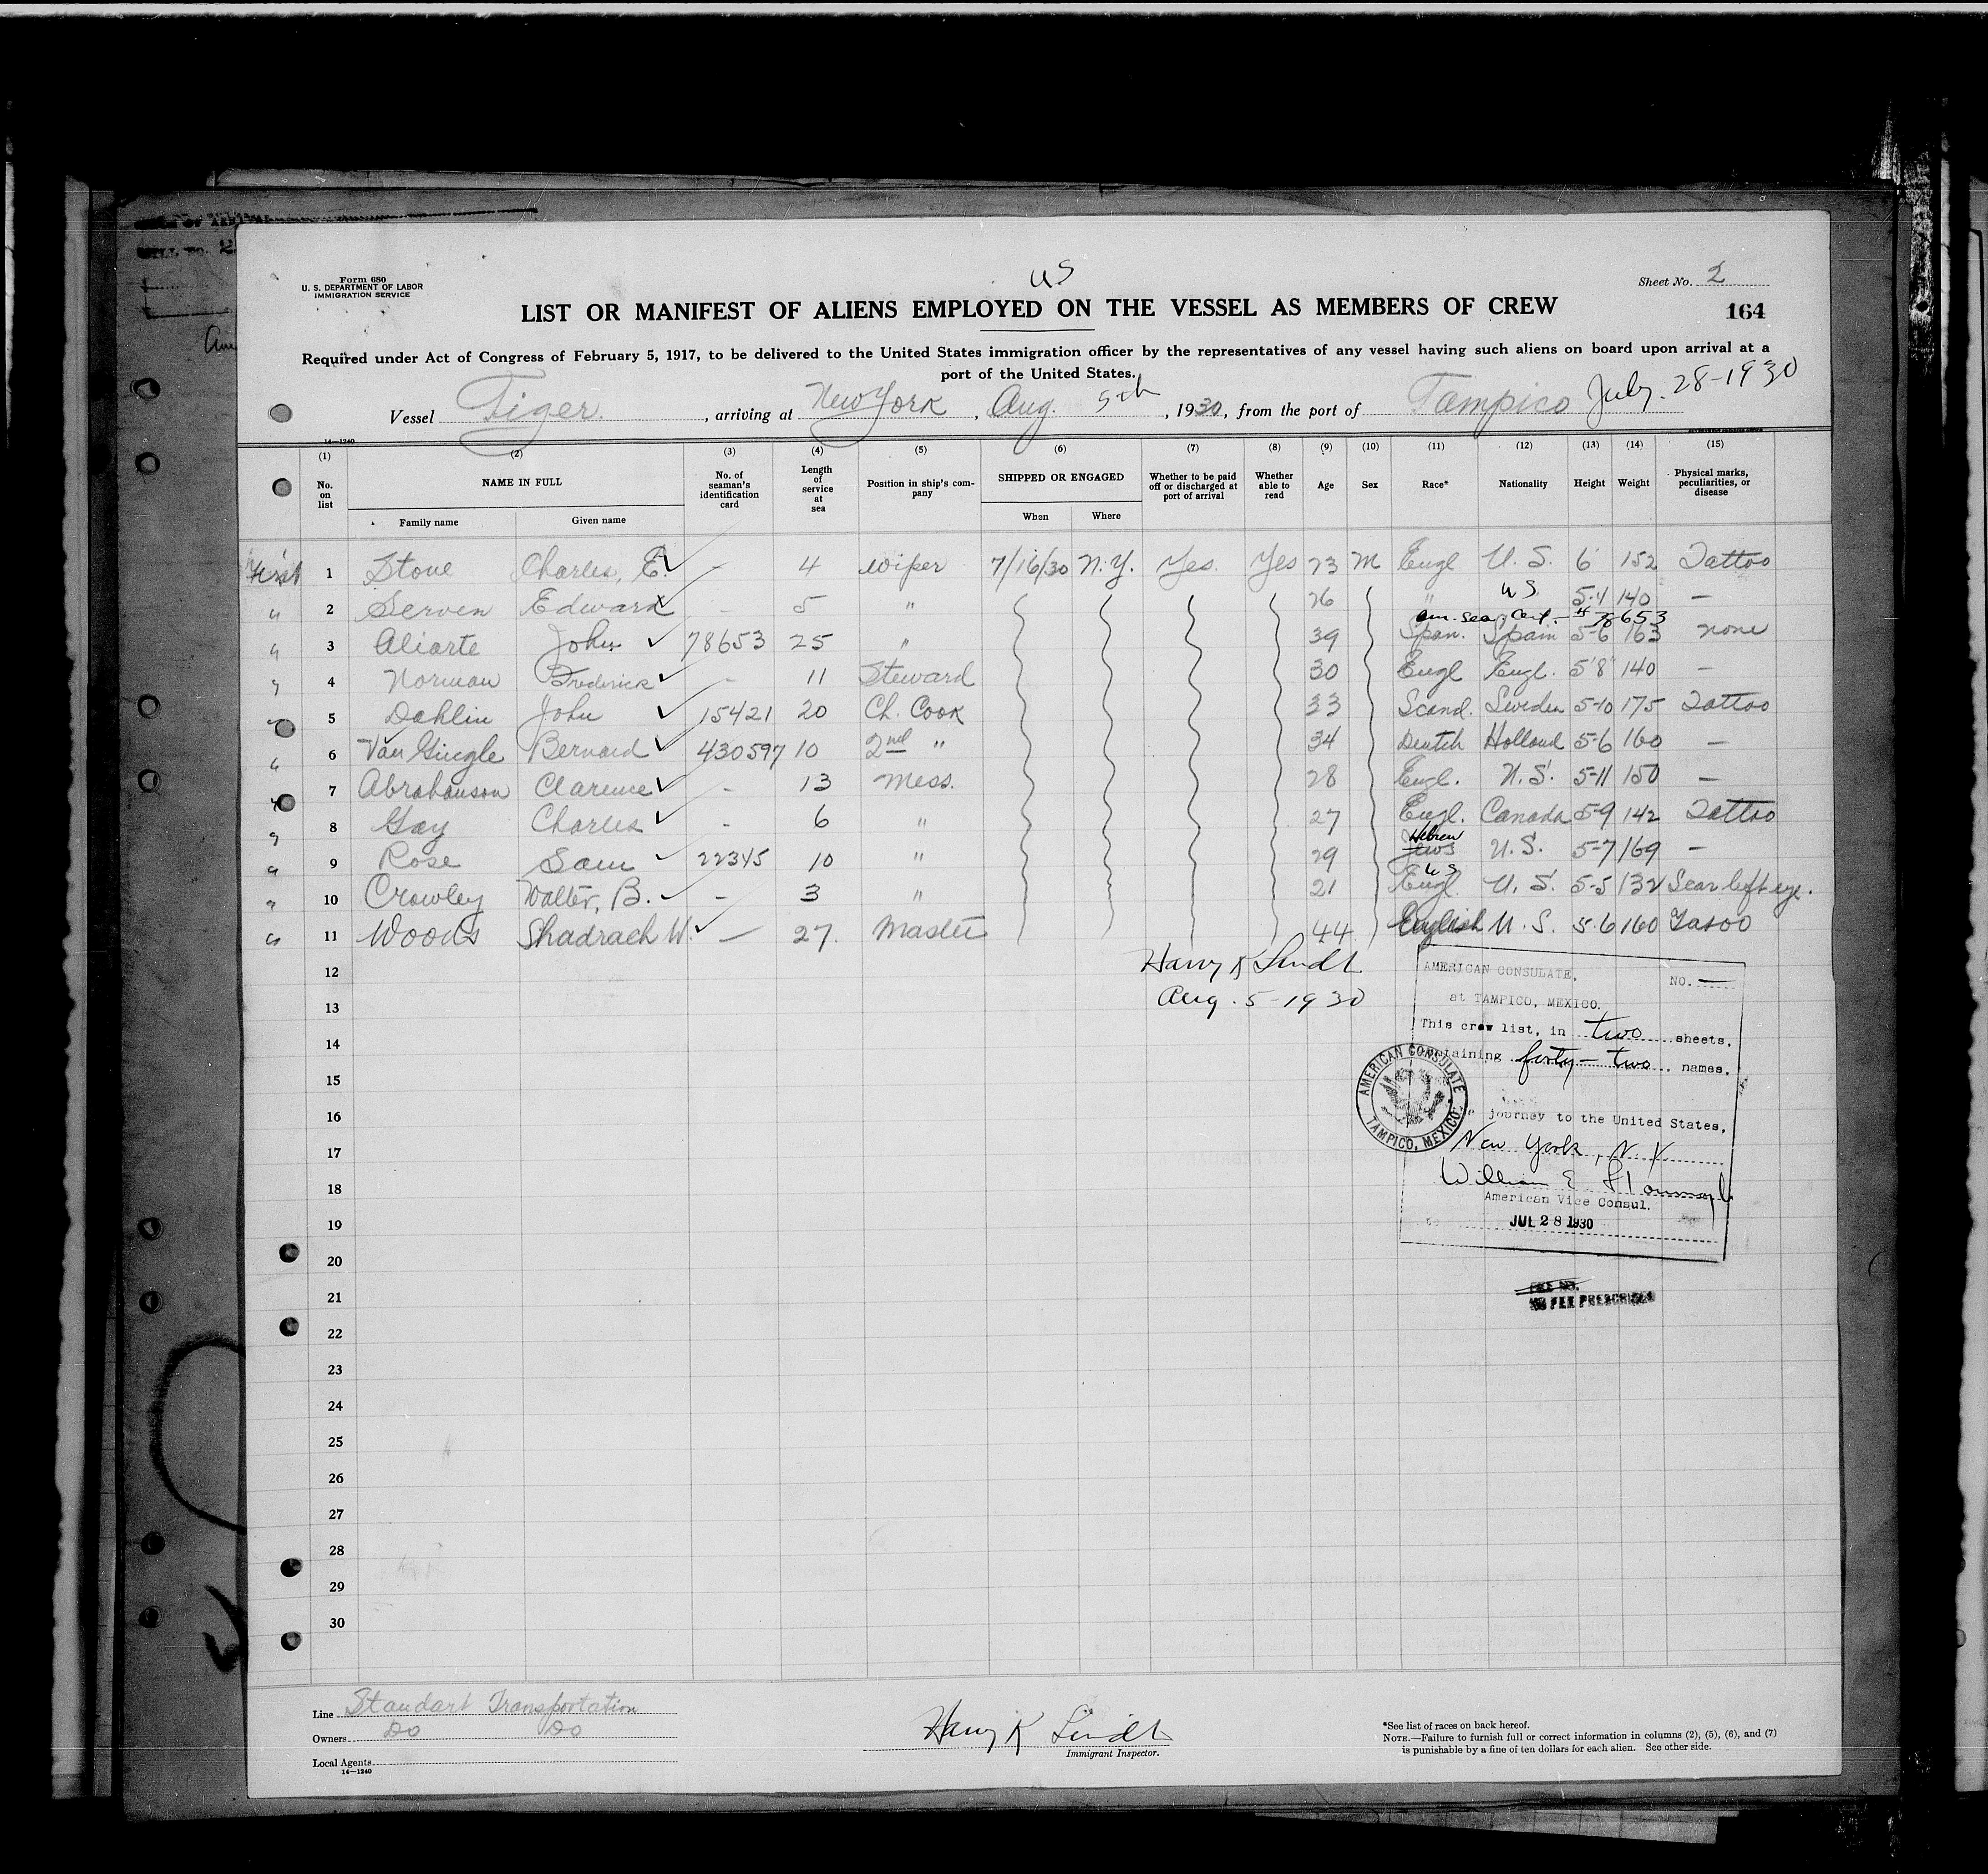 Form 680
U. S. DEPARTMENT OF LABOR
IMMIGRATION SERVICE
US
Sheet No. 2
LIST OR MANIFEST OF ALIENS EMPLOYED ON THE VESSEL AS MEMBERS OF CREW
164
Required under Act of Congress of February 5, 1917, to be delivered to the United States immigration officer by the representatives of any vessel having such aliens on board upon arrival at a
port of the United States.
Vessel Tiger, arriving at New York, Aug. 5th, 1930, from the port of Tampico July. 28-1930
14-1240
(1) (2) (3) (4) (5) (6) (7) (8) (9) (10) (11) (12) (13) (14) (15)
No. on list NAME IN FULL Family name Given name No. of seaman's identification card Length of service at sea Position in ship's company SHIPPED OR ENGAGED When Where Whether to be paid off or discharged at port of arrival Whether able to read Age Sex Race* Nationality Height Weight Physical marks, peculiarities, or disease
First 1 Stone Charles, E. - 4 Wiper 7/16/30 N.Y. Yes. Yes 23 M Engl U. S. 6' 152 Tattoo
" 2 Serven Edward - 5 " 26 " US 5-4 140 -
am. sea. cert. - # 78653
" 3 Aliarte John 78653 25 " 39 Span. Spain 5-6 163 none
" 4 Norman Frederick - 11 Steward 30 Engl Engl. 5'8" 140 -
" 5 Dahlin John 15421 20 Ch. Cook 33 Scand. Sweden 5-10 175 Tattoo
" 6 Van Gingle Bernard 430597 10 2nd " 34 Deutch Holland 5-6 160 -
" 7 Abrahamson Clarence - 13 Mess. 28 Engl. U.S. 5-11 150 -
" 8 Gay Charles - 6 " 27 Engl. Canada 5-9 142 Tattoo
Hebrew
" 9 Rose Sam 22345 10 " 29 Jews U.S. 5-7 169 -
US
" 10 Crowley Walter, B. - 3 " 21 Engl. U. S. 5-5 132 Scar left eye.
" 11 Woods Shadrach W. - 27. Master 44 English U. S. 5-6 160 Tatoo
12
13
14
15
16
17
18
19
20
21
22
23
24
25
26
27
28
29
30
Harry K Lindt
Aug. 5-1930
AMERICAN CONSULATE,
NO. -
at TAMPICO, MEXICO.
This crew list, in two sheets,
containing forty-two names.
journey to the United States,
New York, N.Y.
William E.
American Vice Consul.
JUL 28 1930
AMERICAN CONSULATE
TAMPICO, MEXICO
NO FEE PRESCRIBED
Line Standart Transportation
Owners Do Do
Local Agents
14-1240
Harry K Lindt
Immigrant Inspector.
*See list of races on back hereof.
NOTE.—Failure to furnish full or correct information in columns (2), (5), (6), and (7)
is punishable by a fine of ten dollars for each alien. See other side.